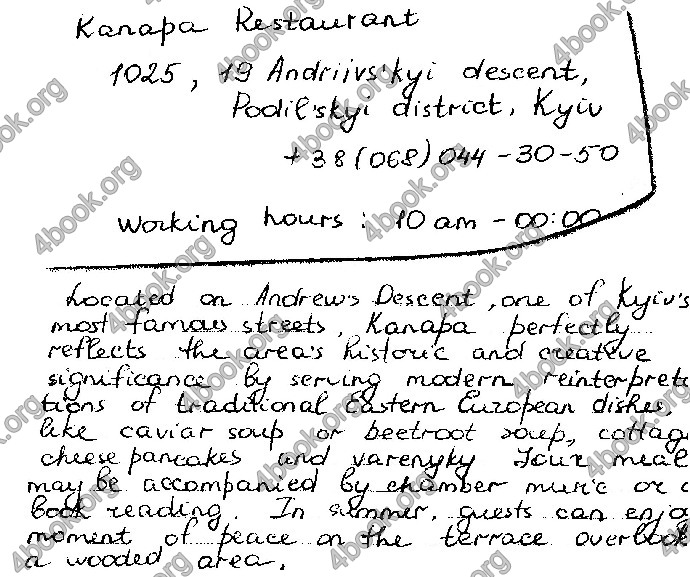 Kanapa Restaurant
1025, 19 Andriivs'kyi descent,
Podil'skyi district, Kyiv
+38(068)044-30-50
Working hours: 10 am - 00:00
Located on Andrew's Descent, one of Kyiv's
most famous streets, Kanapa perfectly
reflects the area's historic and creative
significance by serving modern reinterpreta
tions of traditional Eastern European dishes,
like caviar soup or beetroot soup, cottag
cheese pancakes and varenyky Your meal
may be accompanied by chamber music or a
book reading. In summer, guests can enjo
moment of peace on the terrace overlook
a wooded area.
4book.org